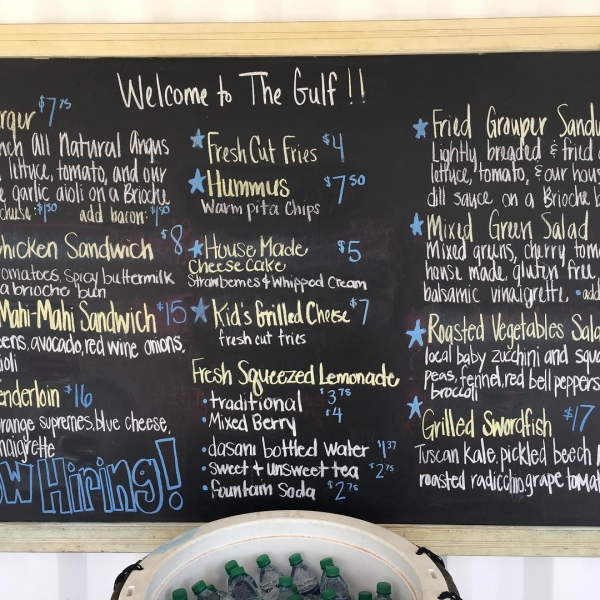 Welcome to The Gulf !!
$7.75
Angus
lettuce, tomato, and our
garlic aioli on a Brioche
$1.50 add bacon: $1.50
Chicken Sandwich $8
tomatoes, spicy buttermilk
a brioche bun
Mahi-Mahi Sandwich $15
avocado, red wine onions,
$16
orange supremes, blue cheese,
Hiring!
Fresh Cut Fries $4
Hummus $7.50
Warm pita chips
House Made $5
Cheese Cake
Strawberries & Whipped Cream
Kid's Grilled Cheese $7
fresh cut fries
Fresh Squeezed Lemonade
• traditional $3.75
• Mixed Berry $4
• dasani bottled water $1.37
• sweet + unsweet tea $2.75
• fountain soda $2.75
Fried Grouper
Lightly breaded & fried
lettuce, tomato, & our
dill sauce on a Brioche
Mixed Green Salad
Mixed greens, cherry
house made, gluten free
balsamic vinaigrette •
Roasted Vegetables
local baby zucchini and
peas, fennel, red bell peppers
broccoli
Grilled Swordfish $17
Tuscan kale, pickled beech
roasted radicchio grape